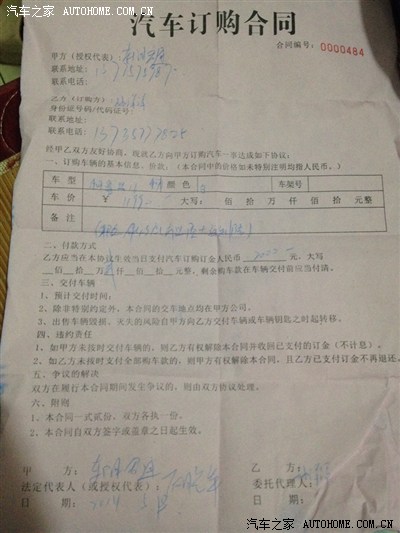 汽车之家 AUTOHOME.COM.CN
汽车订购合同
合同编号：0000484
甲方（授权代表）：
联系地址：
联系电话：
乙方（订购方）：
身份证号码/代码证号：
联系地址：
联系电话：
经甲乙双方友好协商，现就乙方向甲方订购汽车一事达成如下协议：
一、订购车辆的基本信息、价款：（本合同中的价格如未特别注明均指人民币。）
车 型 颜 色 车架号
车 价 ￥ 大写： 佰 拾 万 仟 佰 拾 元整
备 注
二、付款方式
乙方应当在本协议生效当日支付汽车订购订金人民币 元，大写
佰 拾 万 仟 佰 拾 元整，剩余购车款在车辆交付前应当付清。
三、交付车辆
1、预计交付时间：
2、除非特别约定外，本合同的交车地点均在甲方公司。
3、出售车辆毁损、灭失的风险自甲方向乙方交付车辆或车辆钥匙之时起转移。
四、违约责任
1、如甲方未按时交付车辆的，则乙方有权解除本合同并收回已支付的订金（不计息）。
2、如乙方未按时支付全部购车款的，则甲方有权解除本合同，且乙方已支付订金不再退还。
五、争议的解决
双方在履行本合同期间发生争议的，则由双方协议处理。
六、附则
1、本合同一式贰份，双方各执一份。
2、本合同自双方签字或盖章之日起生效。
甲 方： 乙 方：
法定代表人（或授权代表）： 委托代理人：
日 期： 日 期：
汽车之家 AUTOHOME.COM.CN